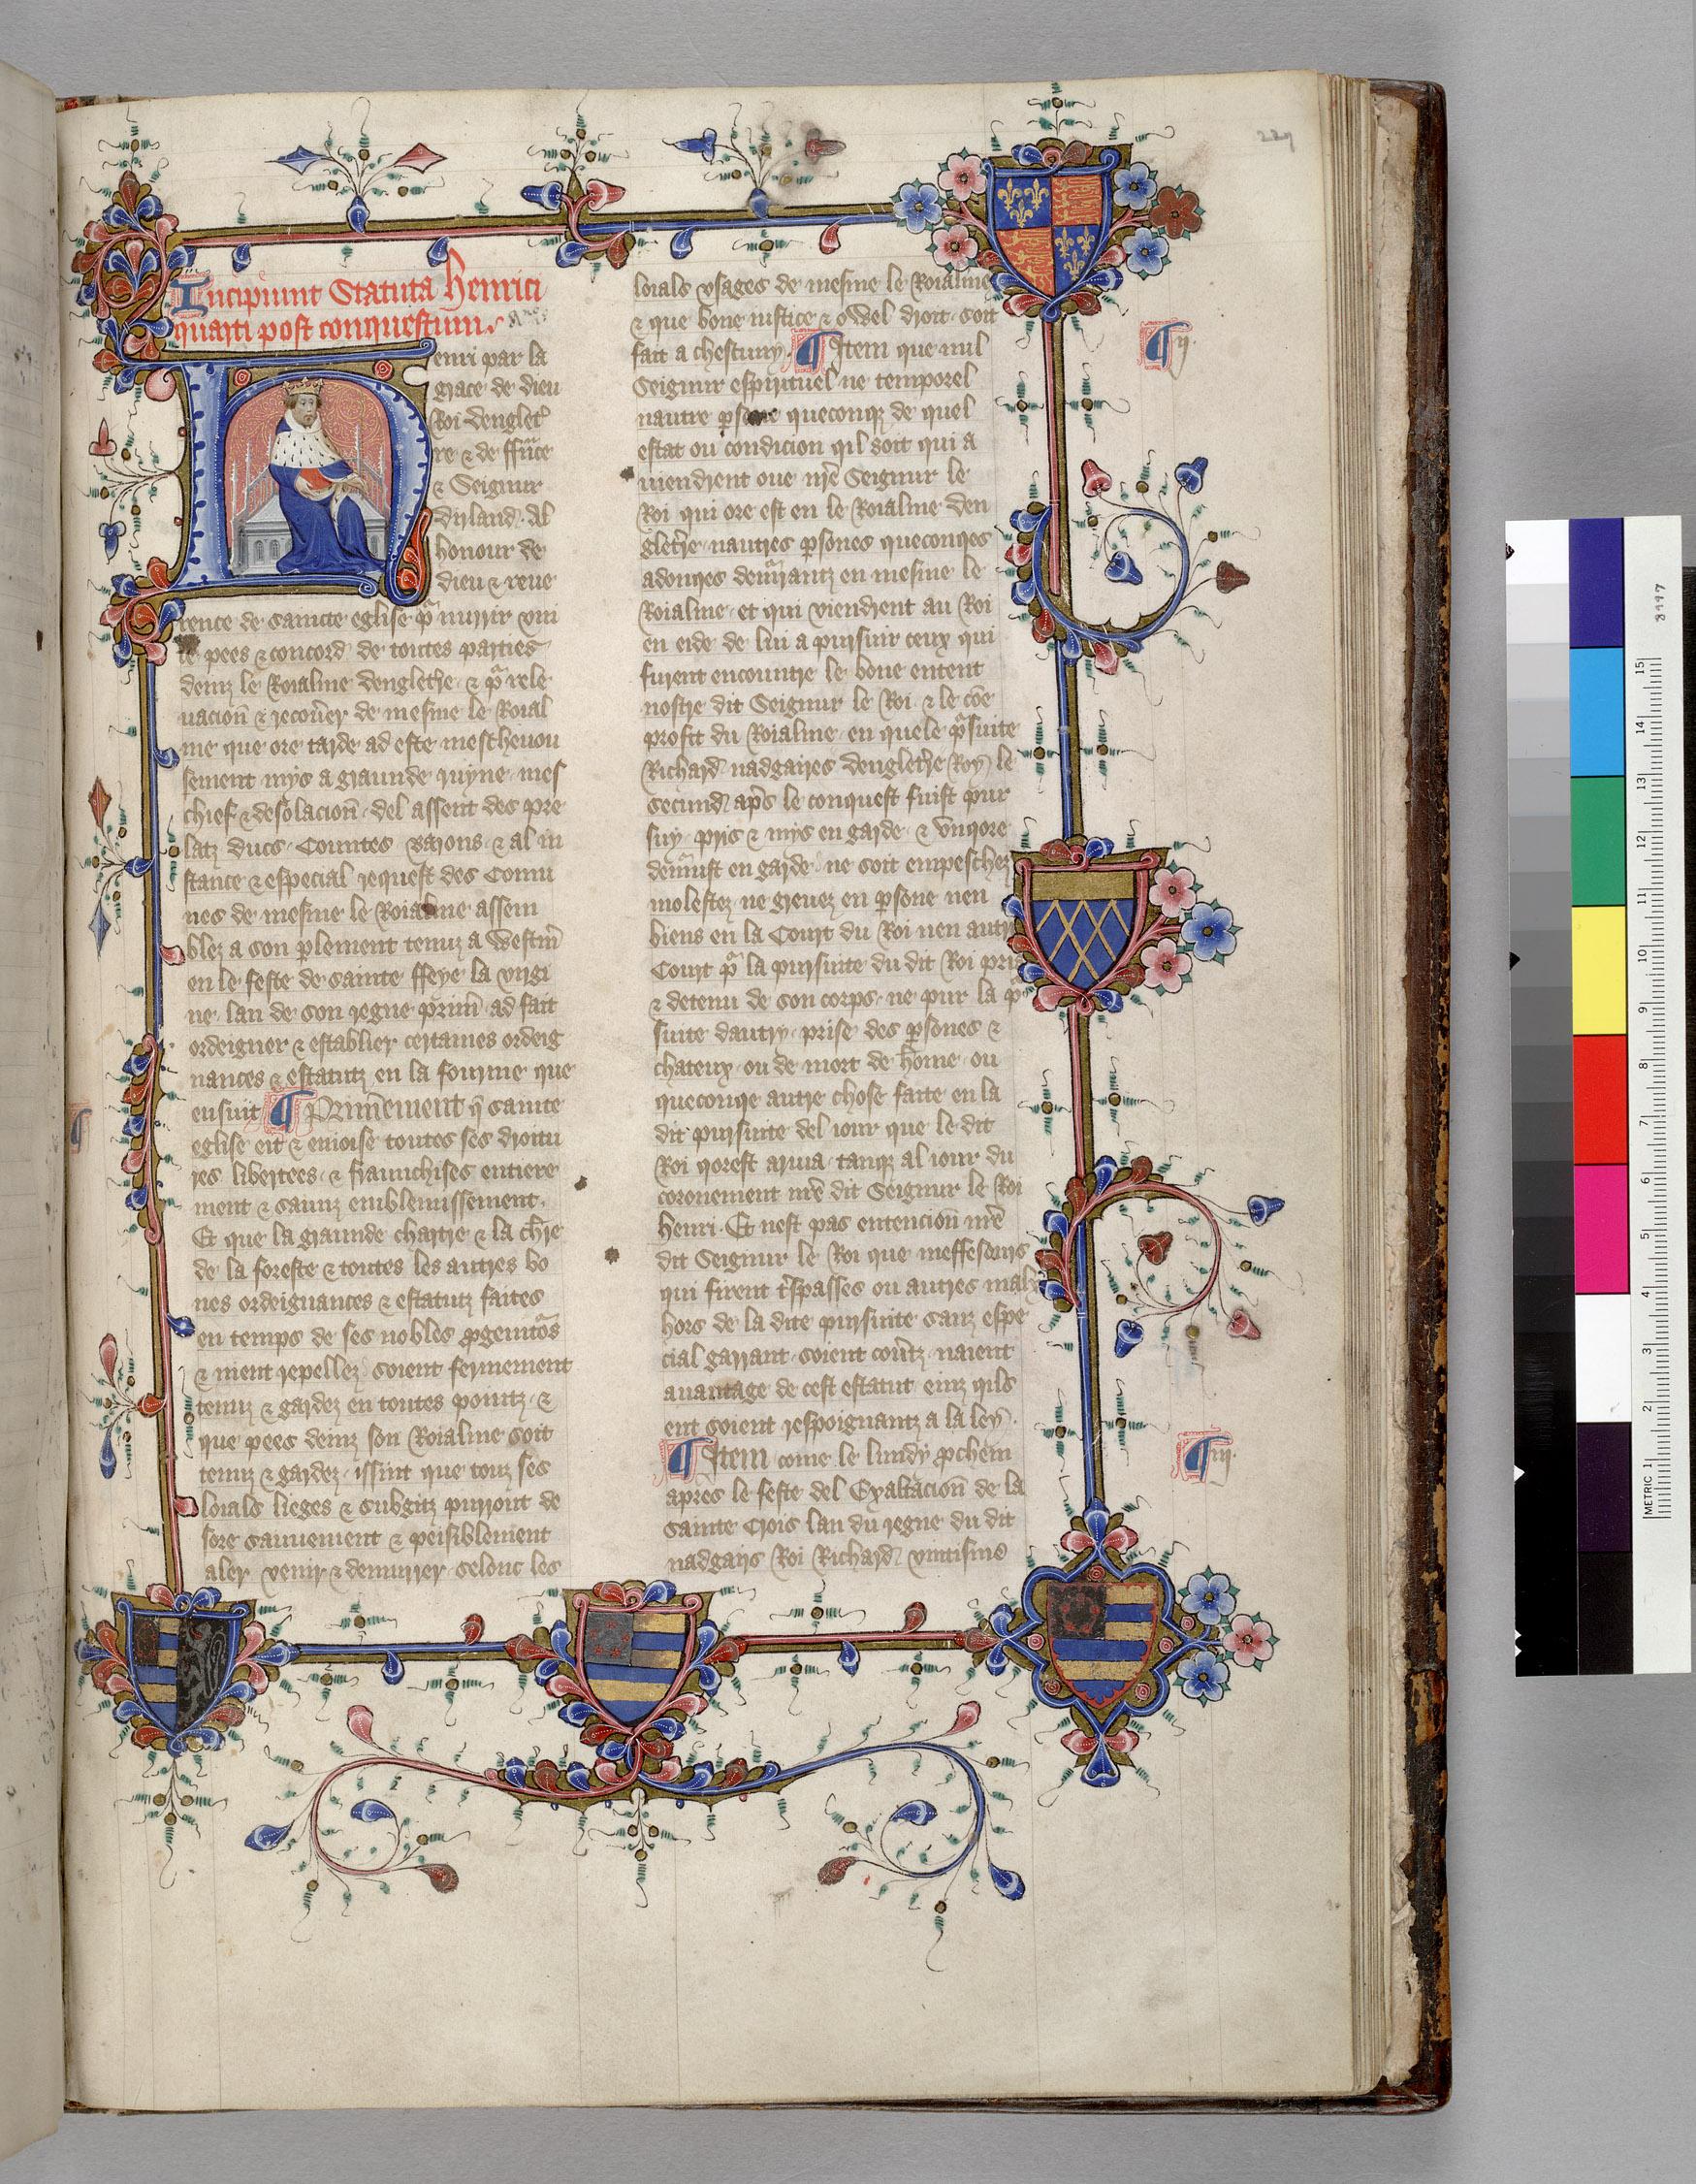 Incipiunt Statuta Henrici
quarti post conquestum.
Henri par la
grace de dieu
Roi denglet'
re & de ffra'ce
& Seignur
dirland. Al
honour de
dieu & reue
rence de saincte eglise pͣ nurrir vni
te pees & concord de toutes parties
deinz le Roialme dengletͬe & pͣ rele
uacion̄ & recou'er de mesme le Roial
me que ore tarde ad este mescheuou
sement mys a graunde ruyne mes
chief & desolacion̄ del assent des pre
latz ducs Countes barons & al in
stance & especial request des Comu
nes de mesme le Roialme assem
blez a son p̱lement tenuz a Westm̄
en le feste de sainte ffeye la virgi
ne lan de son regne p'im̄ ad fait
ordeigner & establier certaines ordeig
nances & estatutz en la fourme que
ensuit ¶ Prim̄ement q̄ sainte
eglise eit & enioise toutes ses droitu
res libertees & fraunchises entiere
ment & saunz emblemissement.
Et que la graunde chartre & la ch're
de la foreste & toutes les autres bo
nes ordeignances & estatutz faites
en temps de ses nobles ꝓgenitoͬs
& nient repellez soient fermement
tenuz & gardez en toutes pointz &
que pees deinz son Roialme soit
tenuz & gardez issint que touz ses
loialx lieges & subgitz purront de
sore sauuement & peisiblement
aler venir & demurrer selonc les
loials vsages de mesme le Roialme
& que bone iustice & owel droit soit
fait a chescuny. ¶ Item que nul
Seignur espirituel ne temporel
nautre p̱sone queconqꝫ de quel
estat ou condicion qil soit qui a
uiendrent oue nr̄e Seignur le
Roi qui ore est en le Roialme den
gletͬre nautres p̱sones queconqes
adonqes demͬantz en mesme le
Roialme et qui viendrent au Roi
en eide de lui a pursuir ceux qui
furent encountre le bone entent
nostre dit Seignur le Roi & le cōe
profit du Roialme en quele pͬsuite
Richard nadgaires dengletͬre Roy le
secund ap's le conquest fuist pur
suy pris & mys en garde & vnqore
demͬust en garde ne soit empeschez
molestez ne greuez en p̱sone nen
biens en la Court du Roi nen autre
Court pͣ la pursuite du dit Roi pris
& detenu de son corps ne pur la pͬ
suite dautry prise des p̱sones &
chateux ou de mort de home ou
queconqe autre chose faite en la
dit pursuite del iour que le dit
Roi qorest ariua tanqꝫ al iour du
coronement nr̄e dit Seignur le Roi
Henri. Et nest pas entencion̄ nr̄e
dit Seignur le Roi que meffesours
qui firent t'spasses ou autres malx
hors de la dite pursuite sanz espe
cial garrant soient cou'tz naient
auantage de cest estatut einz qils
ent soient respoignantz a la ley.
¶ Item come le lundy ꝓchein
apres le feste del Exaltacion̄ de la
sainte Crois lan du regne du dit
nadgairs Roi Richard vintisme
¶ ij.
¶ iij.
METRIC 1 2 3 4 5 6 7 8 9 10 11 12 13 14 15